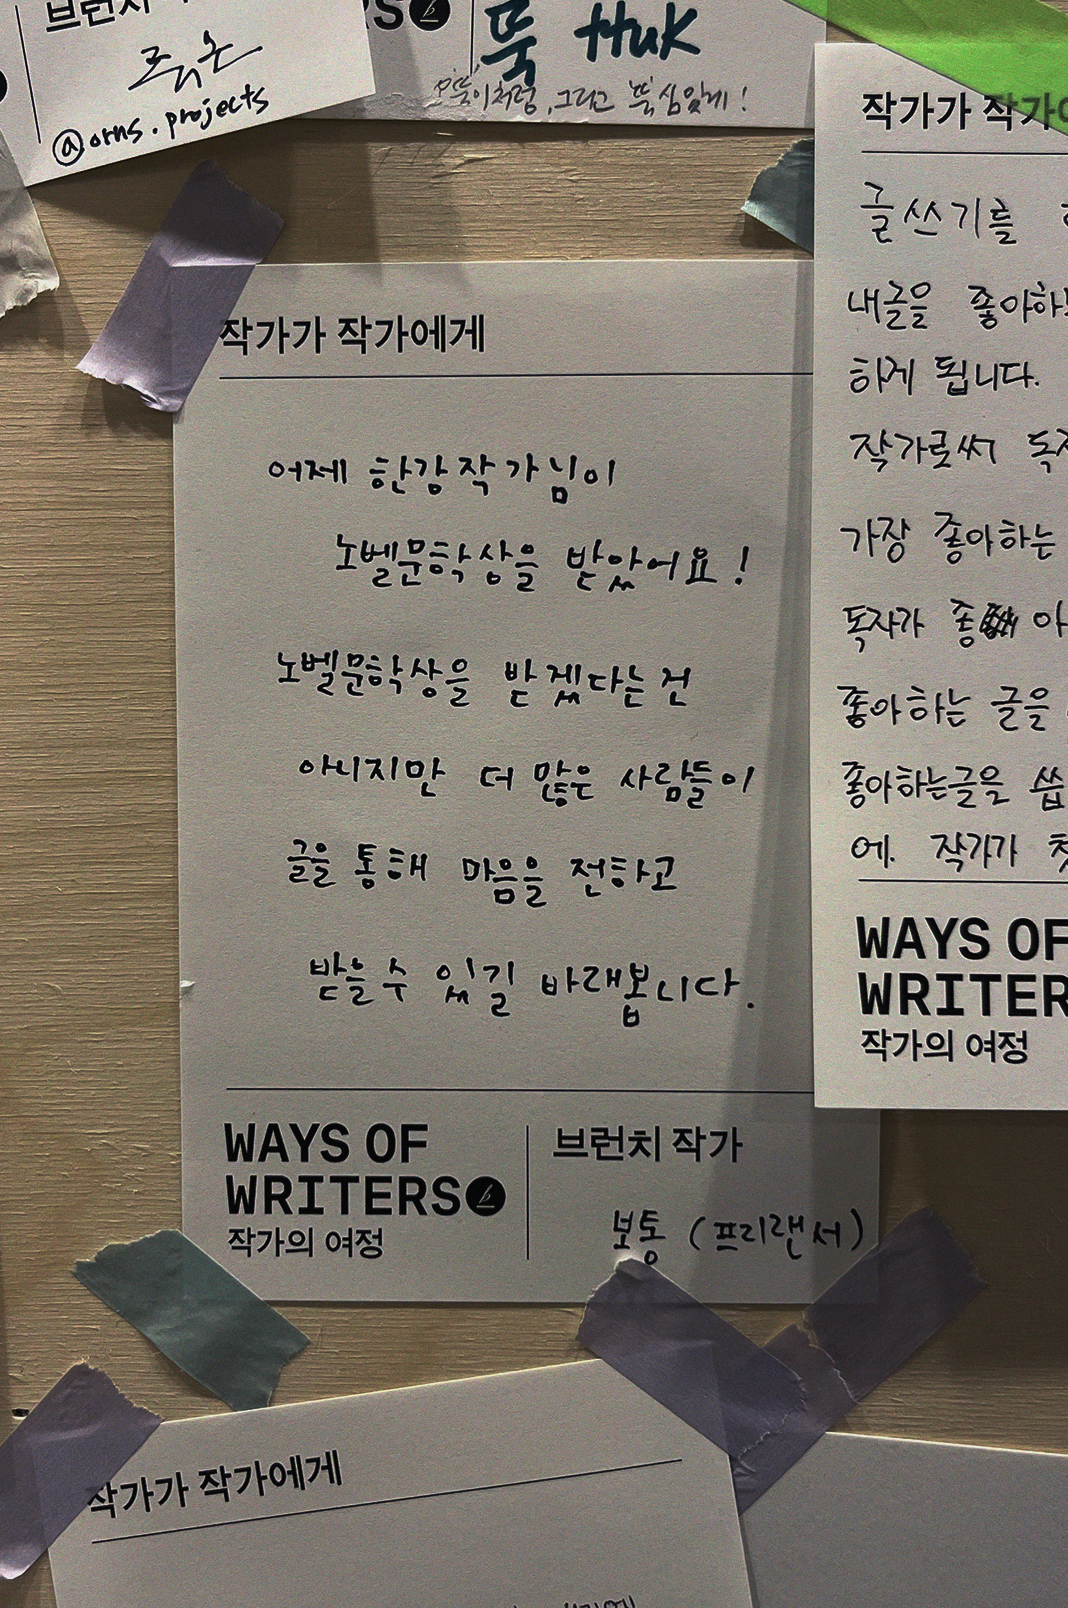 @orns.projects
뚝 Huk
작가가 작가에게
어제 한강 작가님이
노벨문학상을 받았어요!
노벨문학상을 받겠다는 건
아니지만 더 많은 사람들이
글을 통해 마음을 전하고
받을 수 있길 바래봅니다.
WAYS OF
WRITERS
작가의 여정
브런치 작가
보통 (프리랜서)
작가가
글쓰기를
내글을
하게 됩니다.
작가로써
가장 좋아하는
독자가
좋아하는 글을
좋아하는글을
에. 작가가
WAYS OF
작가의 여정
작가가 작가에게